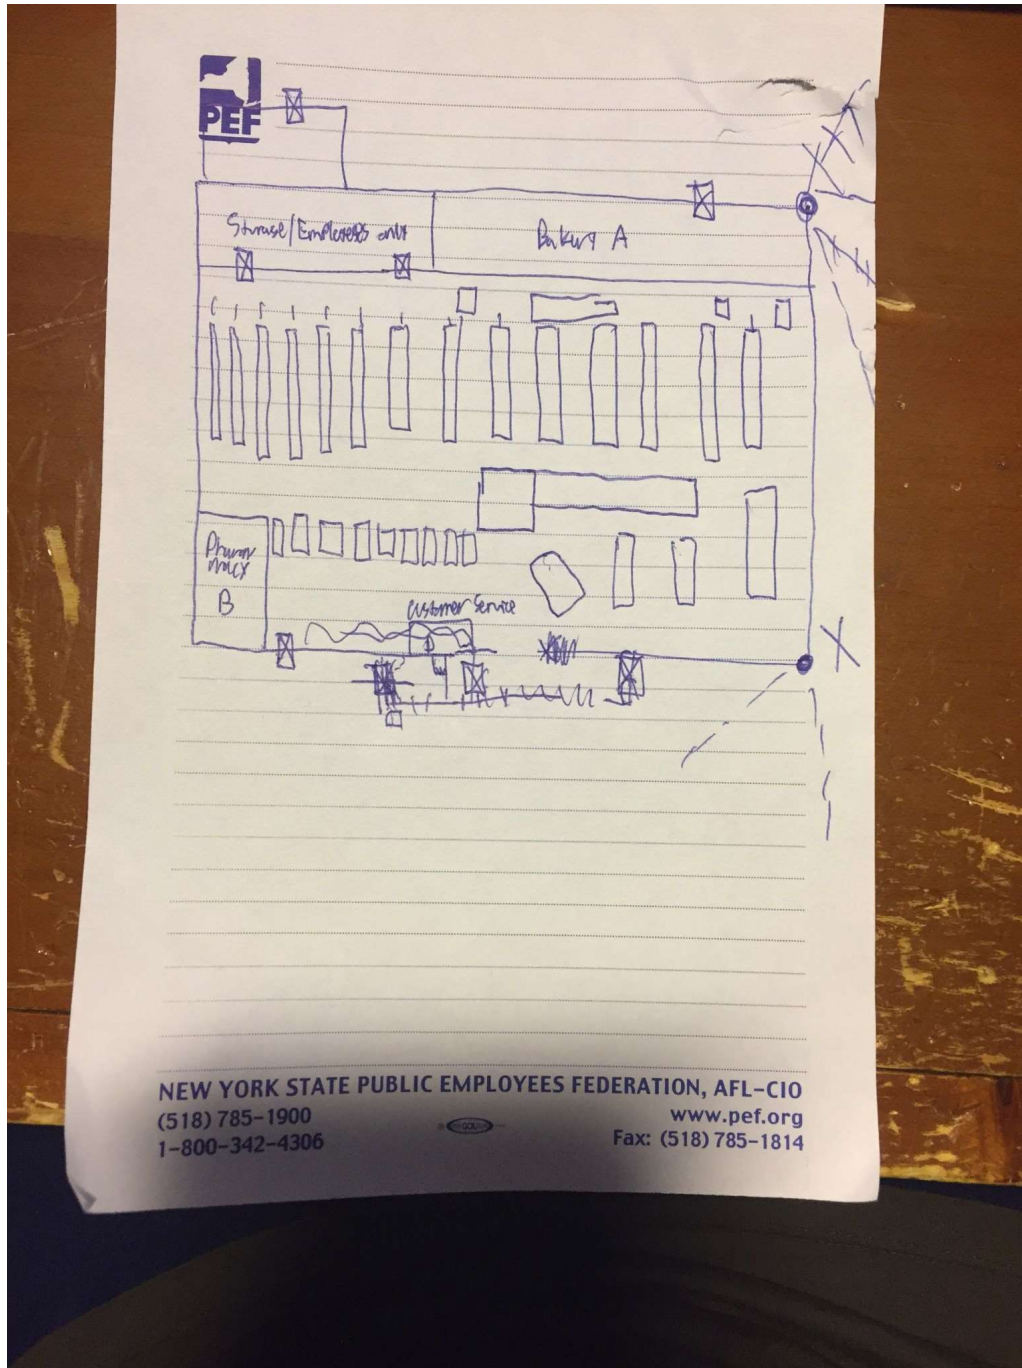 PEF
Storage/Employees only
Bakery A
Pharm
macy
B
Customer Service
D
NEW YORK STATE PUBLIC EMPLOYEES FEDERATION, AFL-CIO
(518) 785-1900
www.pef.org
1-800-342-4306
Fax: (518) 785-1814